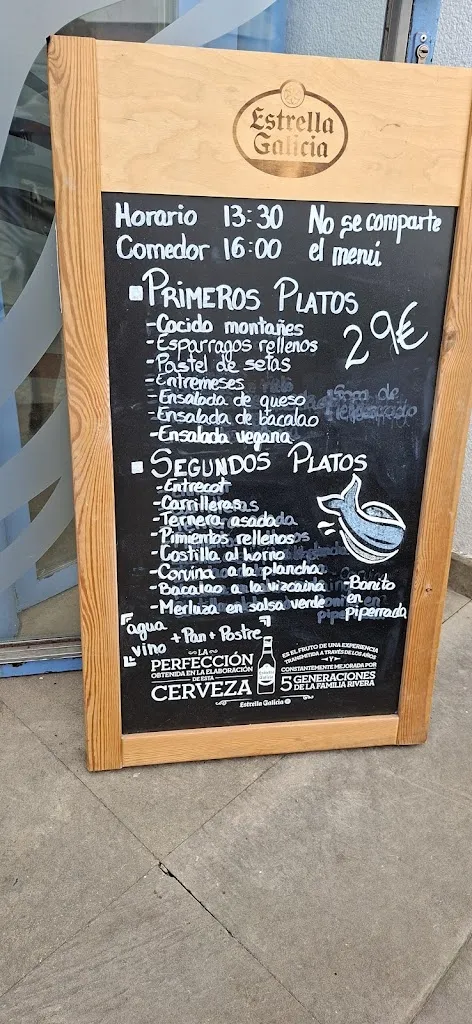 Estrella
Galicia
Horario 13:30 No se comparte
Comedor 16:00 el menú
PRIMEROS PLATOS
29€
-Cocido montañes
-Esparragos rellenos
-Pastel de setas
-Entremeses
-Ensalada de queso
-Ensalada de bacalao
-Ensalada vegana
SEGUNDOS PLATOS
-Entrecot
-Carrilleras
-Ternera asada
-Pimientos rellenos
-Costilla al horno
-Corvina a la plancha
-Bacalao a la vizcaina
-Merluza en salsa verde
-Bonito
en
piperrada
agua
vino + Pan + Postre
LA
PERFECCIÓN
OBTENIDA EN LA ELABORACIÓN
DE ESTA
CERVEZA
ES EL FRUTO DE UNA EXPERIENCIA
TRANSMITIDA A TRAVÉS DE LOS AÑOS
Y
CONSTANTEMENTE MEJORADA POR
5 GENERACIONES
DE LA FAMILIA RIVERA
Estrella Galicia